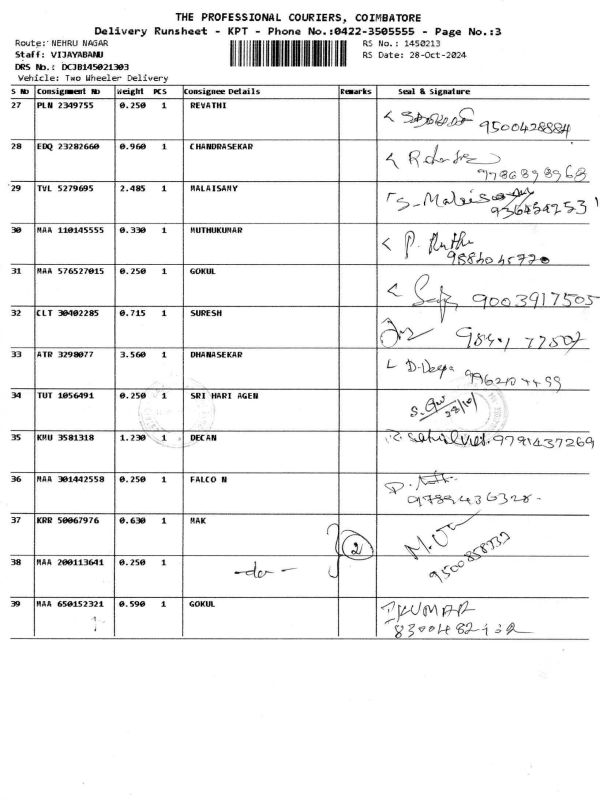 THE PROFESSIONAL COURIERS, COIMBATORE
Delivery Runsheet - KPT - Phone No.:0422-3505555 - Page No.:3
Route: NEHRU NAGAR RS No.: 1450213
Staff: VIJAYABANU RS Date: 28-Oct-2024
DRS No.: DCJB145021303
Vehicle: Two Wheeler Delivery
S No Consignment No Weight PCS Consignee Details Remarks Seal & Signature
27 PLN 2349755 0.250 1 REVATHI
9500428884
28 EDQ 23282660 0.960 1 CHANDRASEKAR
9786898968
29 TVL 5279695 2.485 1 MALAISAMY
S. Malaisamy
30 MAA 110145555 0.330 1 MUTHUKUMAR
P. Muthu
31 MAA 576527015 0.250 1 GOKUL
9003917505
32 CLT 30402285 0.715 1 SURESH
33 ATR 3298077 3.560 1 DHANASEKAR
D. Deepa
34 TUT 1056491 0.250 1 SRI HARI AGEN
28/10/
35 KMU 3581318 1.230 1 DECAN
9791437269
36 MAA 301442558 0.250 1 FALCO N
9789436328
37 KRR 50067976 0.630 1 MAK
2
38 MAA 200113641 0.250 1 -do-
39 MAA 650152321 0.590 1 GOKUL
KUMAR